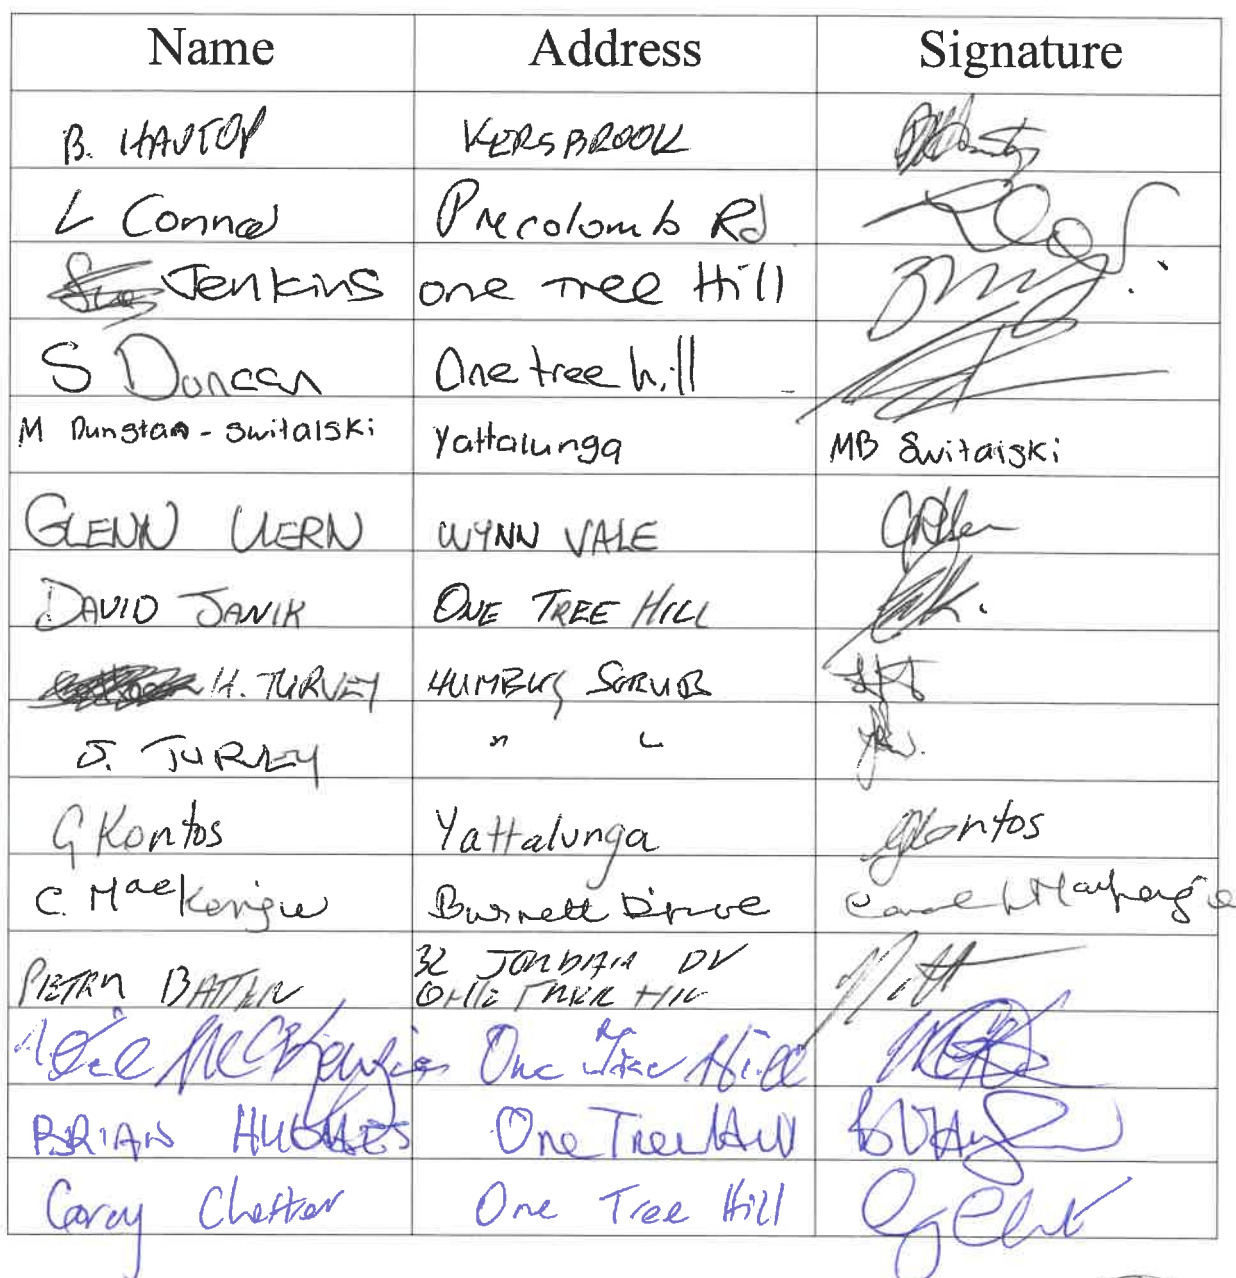 Name Address Signature
B. HAVTOP KERSBROOK
L Connel Precolomb Rd
Jenkins one Tree Hill
S Duncan One tree hill
M Dunstan - Switalski Yattalunga MB Switalski
GLENN UERN WYNN VALE
DAVID JANIK ONE TREE HILL
H. TURVEY HUMBUG SCRUB
J. TURVEY " "
G Kontos Yattalunga GKontos
C. MacKenzie Burnett Drive
32 JORDAN DV
BATTEN ONE TREE HILL
McKenzie One Tree Hill
BRIAN HUGHES One Tree Hill
Carey Chetter One Tree Hill